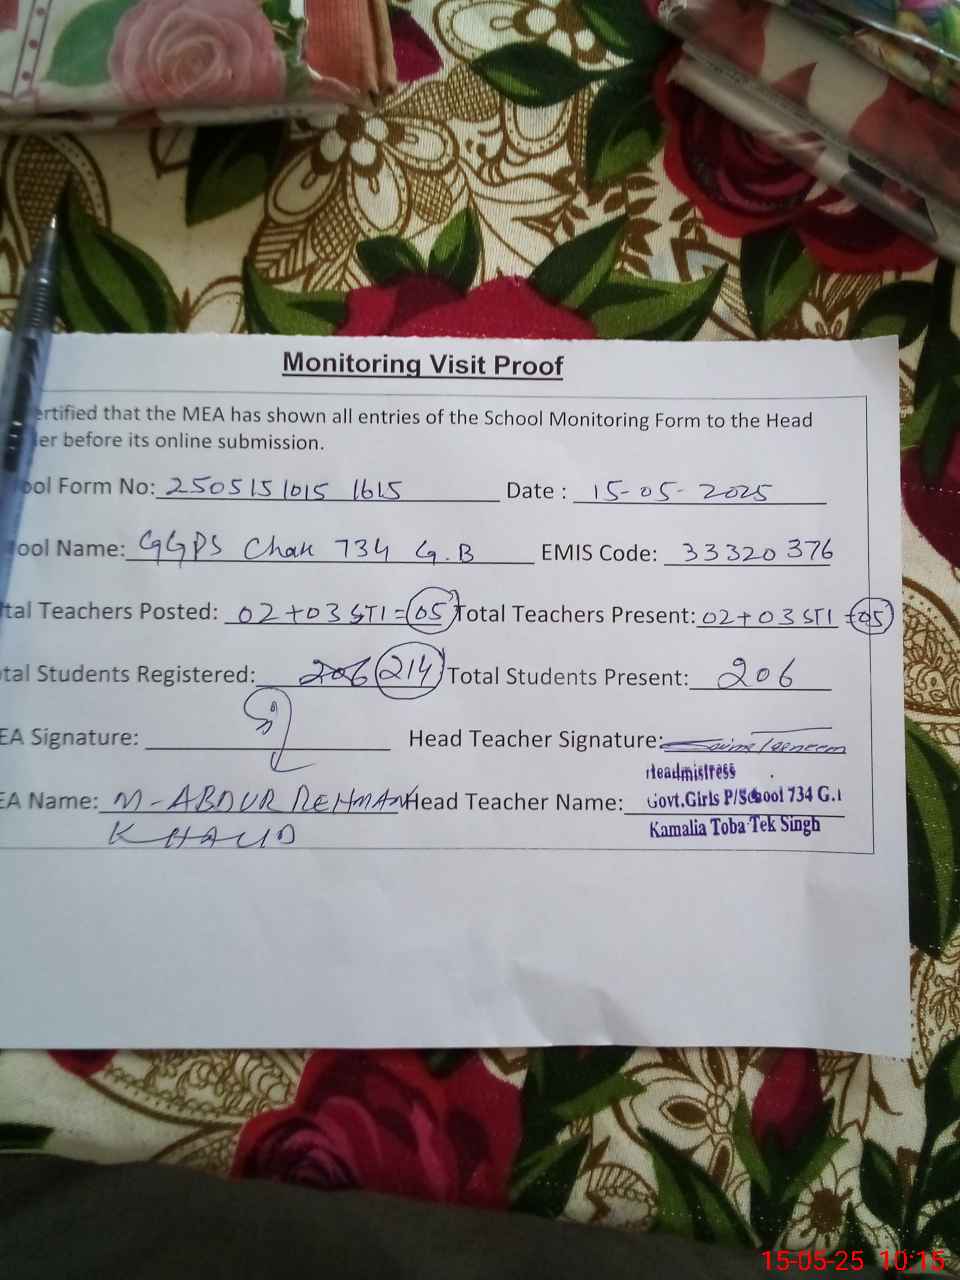 Monitoring Visit Proof
ertified that the MEA has shown all entries of the School Monitoring Form to the Head
er before its online submission.
ool Form No: 2505151015 1615 Date : 15-05-2025
ool Name: GGPS Chak 734 G.B EMIS Code: 33320376
tal Teachers Posted: 02+03 STI = 05 Total Teachers Present: 02+03 STI = 05
tal Students Registered: 206 214 Total Students Present: 206
EA Signature: Head Teacher Signature:
Headmistress
EA Name: M-ABDUR REHMAN Head Teacher Name: Govt.Girls P/School 734 G.
KHALID Kamalia Toba Tek Singh
15-05-25 10:15